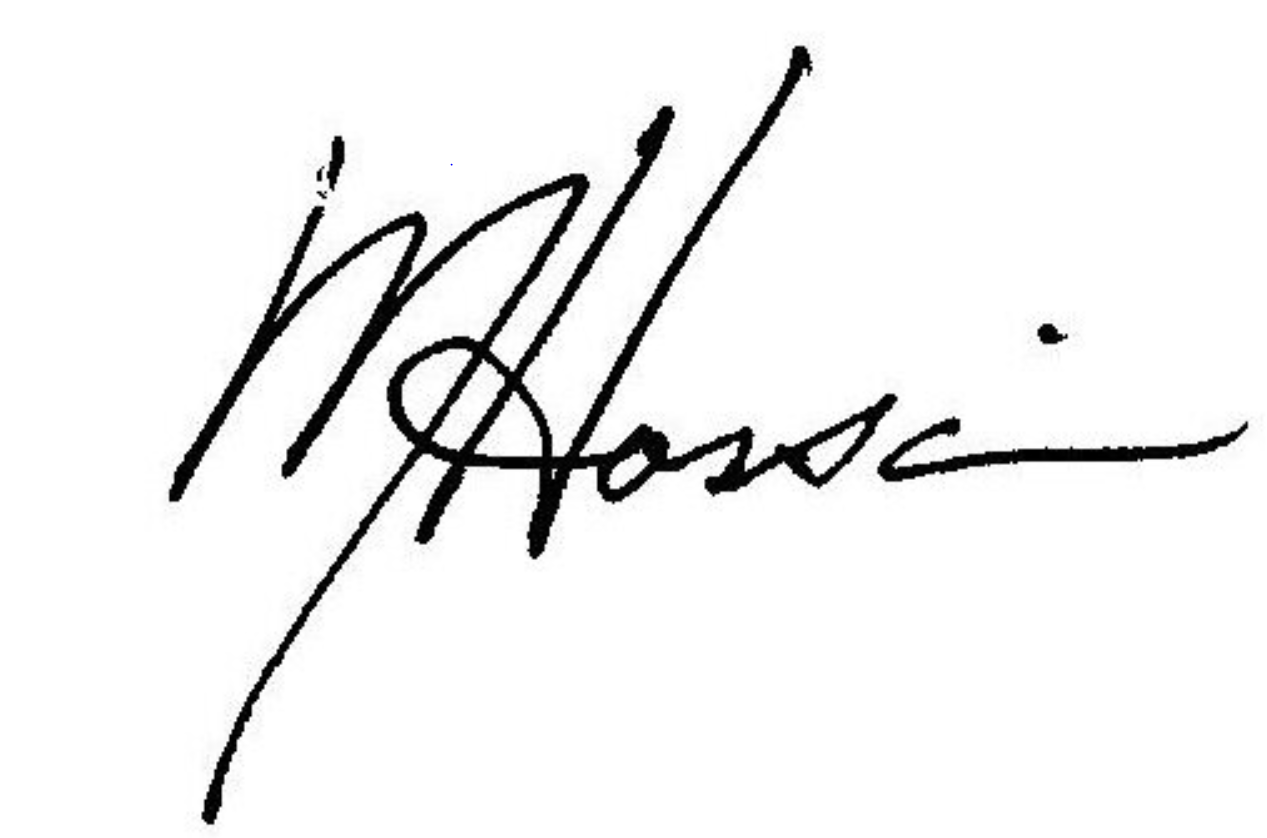 M Hossain